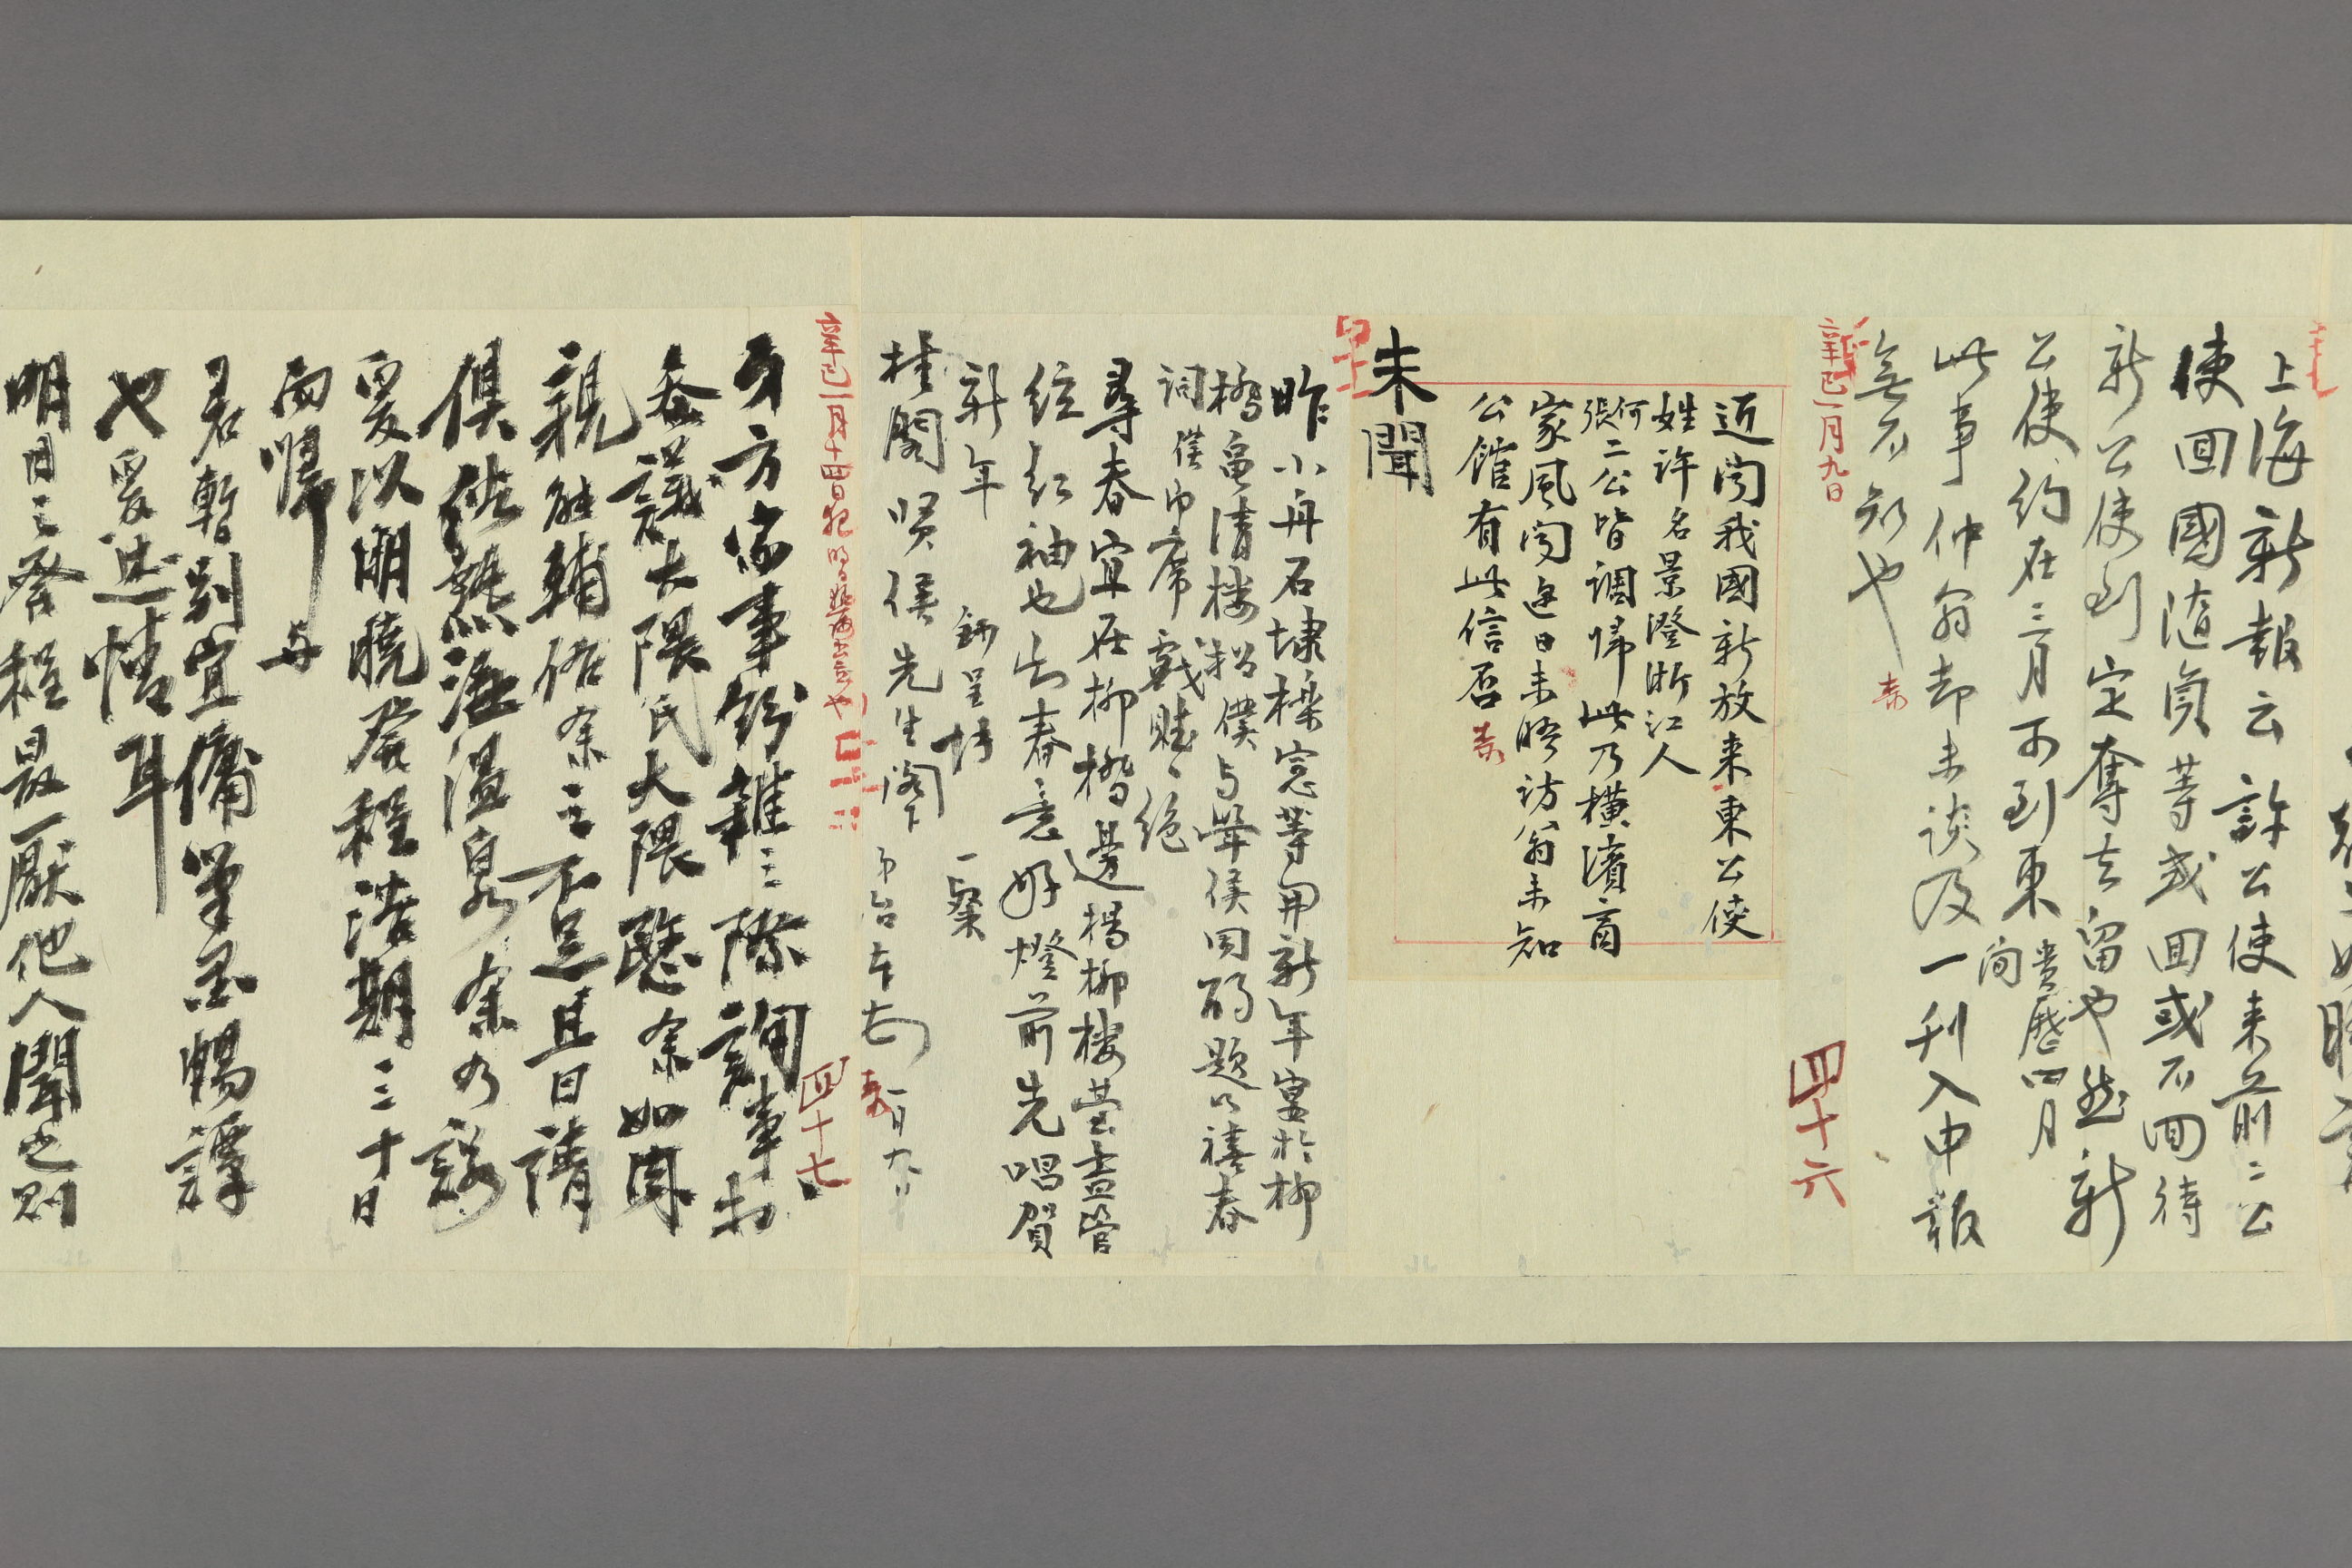 上海新報云許公使来前二公
使回國隨負等或回或不回待
新公使到定奪去留也然新
公使約在三月可到東
貴歷四月
間
此事仲翁却未談及一刊入申報
無不知也
辛巳一月九日
四十六
近聞我國新放来東公使
姓許名景澄浙江人
何
張
二公皆調歸此乃橫濱商
家風聞迩日未晤訪翁未知
公館有此信否
未聞
昨小舟石埭
等開新年宴於柳
橋
清楼招僕与
侯同
題以禧春
詞僕即席戲賦一絕
尋春宜在柳橋邊楊柳樓臺盡管
絃紅袖也知春意好燈前先唱賀
新年
錄呈
一粲
桂閣賢侯先生閣下
一月六日
四十七
辛巳一月十四日
方家事紛雜之際詢事於
参議大隈氏大隈
余如
親能輔佐余之不足且日請
俱
熱海溫泉余乃
爰以明曉發程
期三十日
而歸
与
君暫別宜備筆墨暢譚
也爰述情耳
明日之發程最厭他人聞之則